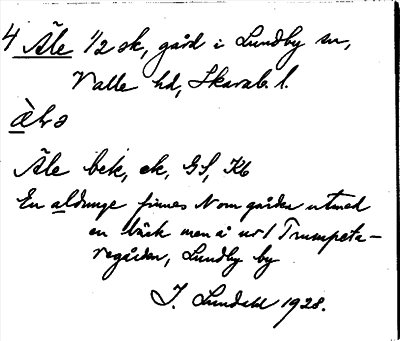 4 Äle 1/2 sk, gård i Lundby sn,
Valle hd, Skarab. l.
Äle bek, ek, GS, Kb
En aldunge finnes N om gården utmed
en bäck men å nr 1 Trumpeta-
regården, Lundby by
J. Lundahl 1928.